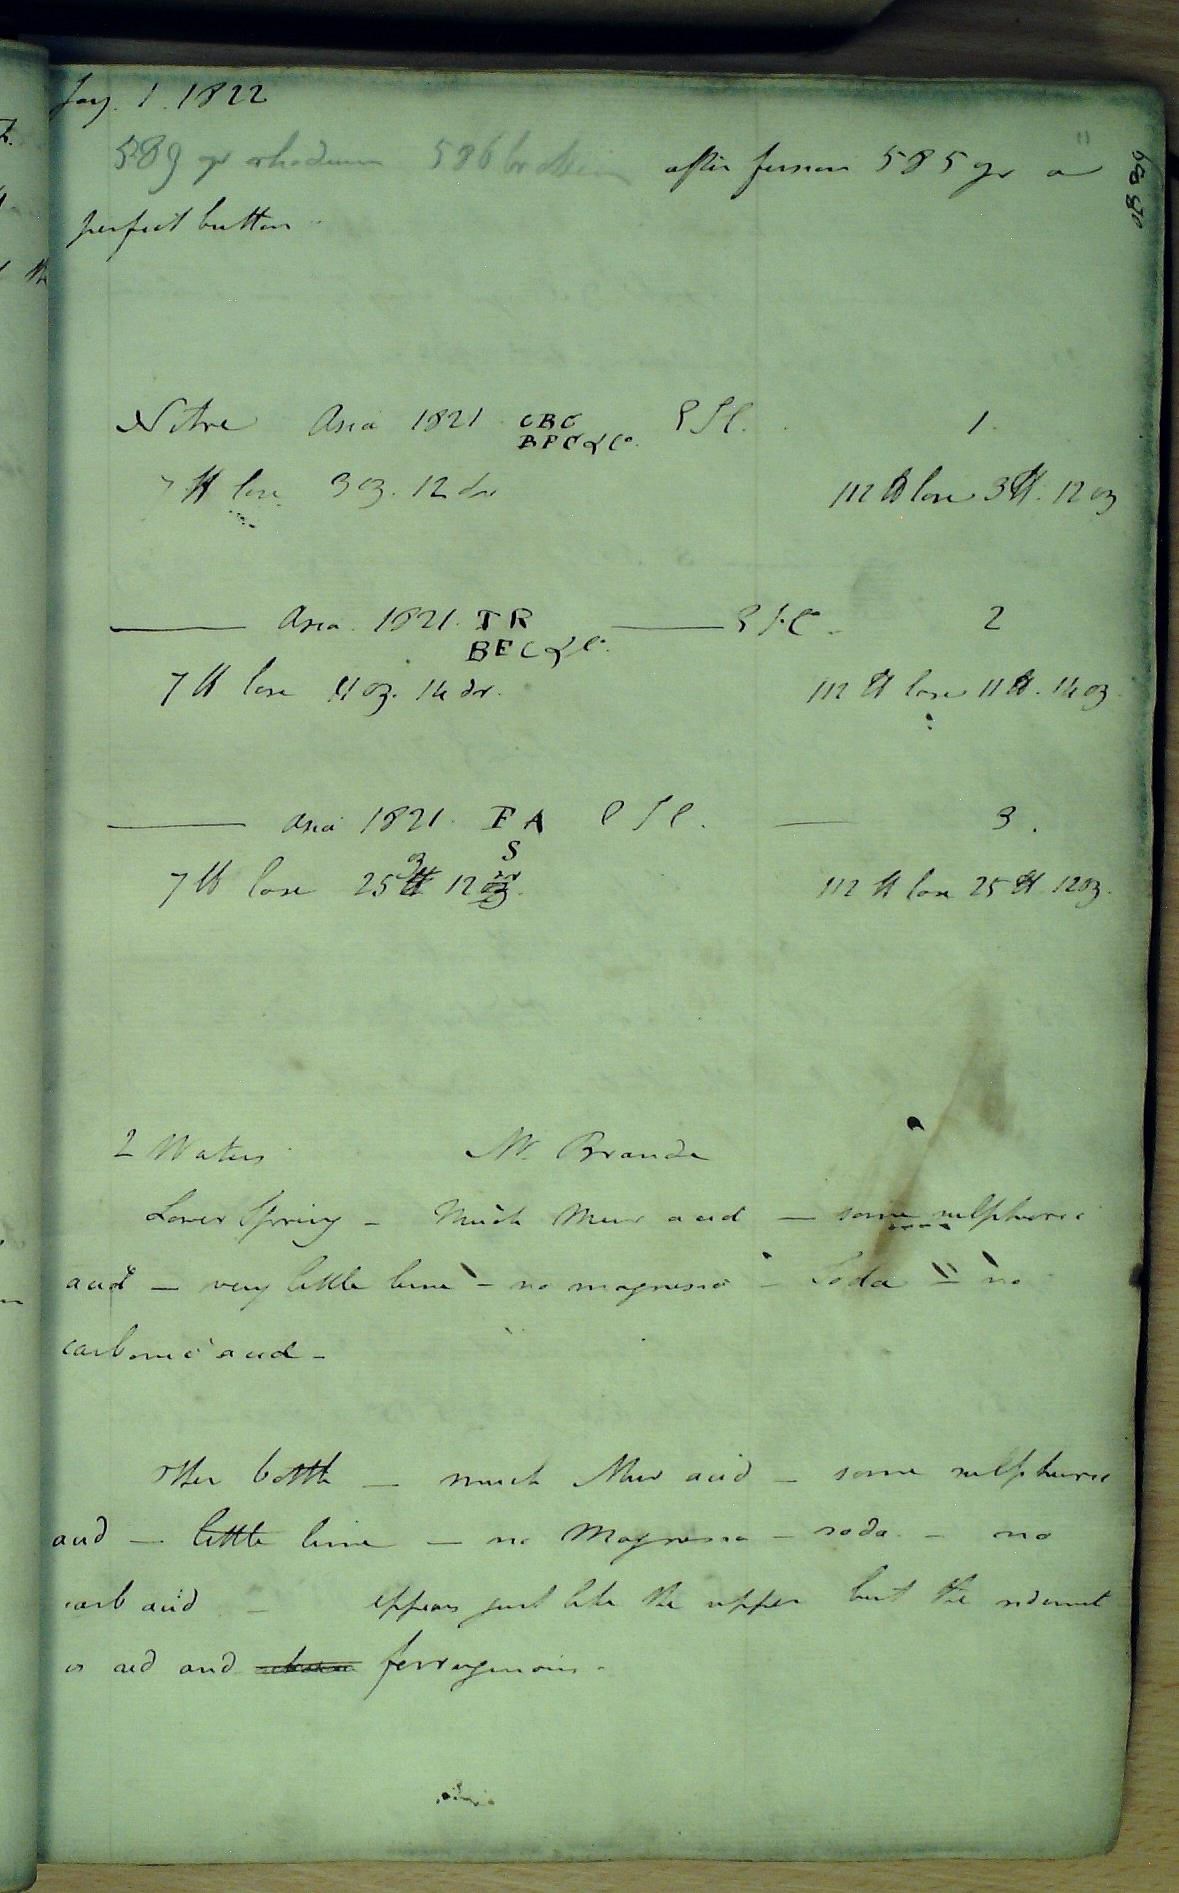 Jany. 1. 1822
589 gr rhodium 586 broken after fusion 585 gr a
perfect button
Nitre Asia 1821 CBC 1.
BFC & Co.
7 lb lose 3 oz. 12 dr 112 lb lose 3 lb. 12 oz
Asia. 1821. TR 2
BFC & Co.
7 lb lose 11 oz. 14 dr. 112 lb lose 11 lb. 14 oz.
Asia 1821. FA 3.
S
7 lb lose 25 oz 12 dr. 112 lb lose 25 lb. 12 oz.
2 Waters Mr. Brande
Lower Spring - Much Mur acid - some sulphuric
acid - very little lime - no magnesia - Soda - no
carbonic acid -
Other bottle - much Mur acid - some sulphuric
acid - little lime - no Magnesia - soda - no
carb acid - appears just like the upper but the sediment
is red and ferruginous -